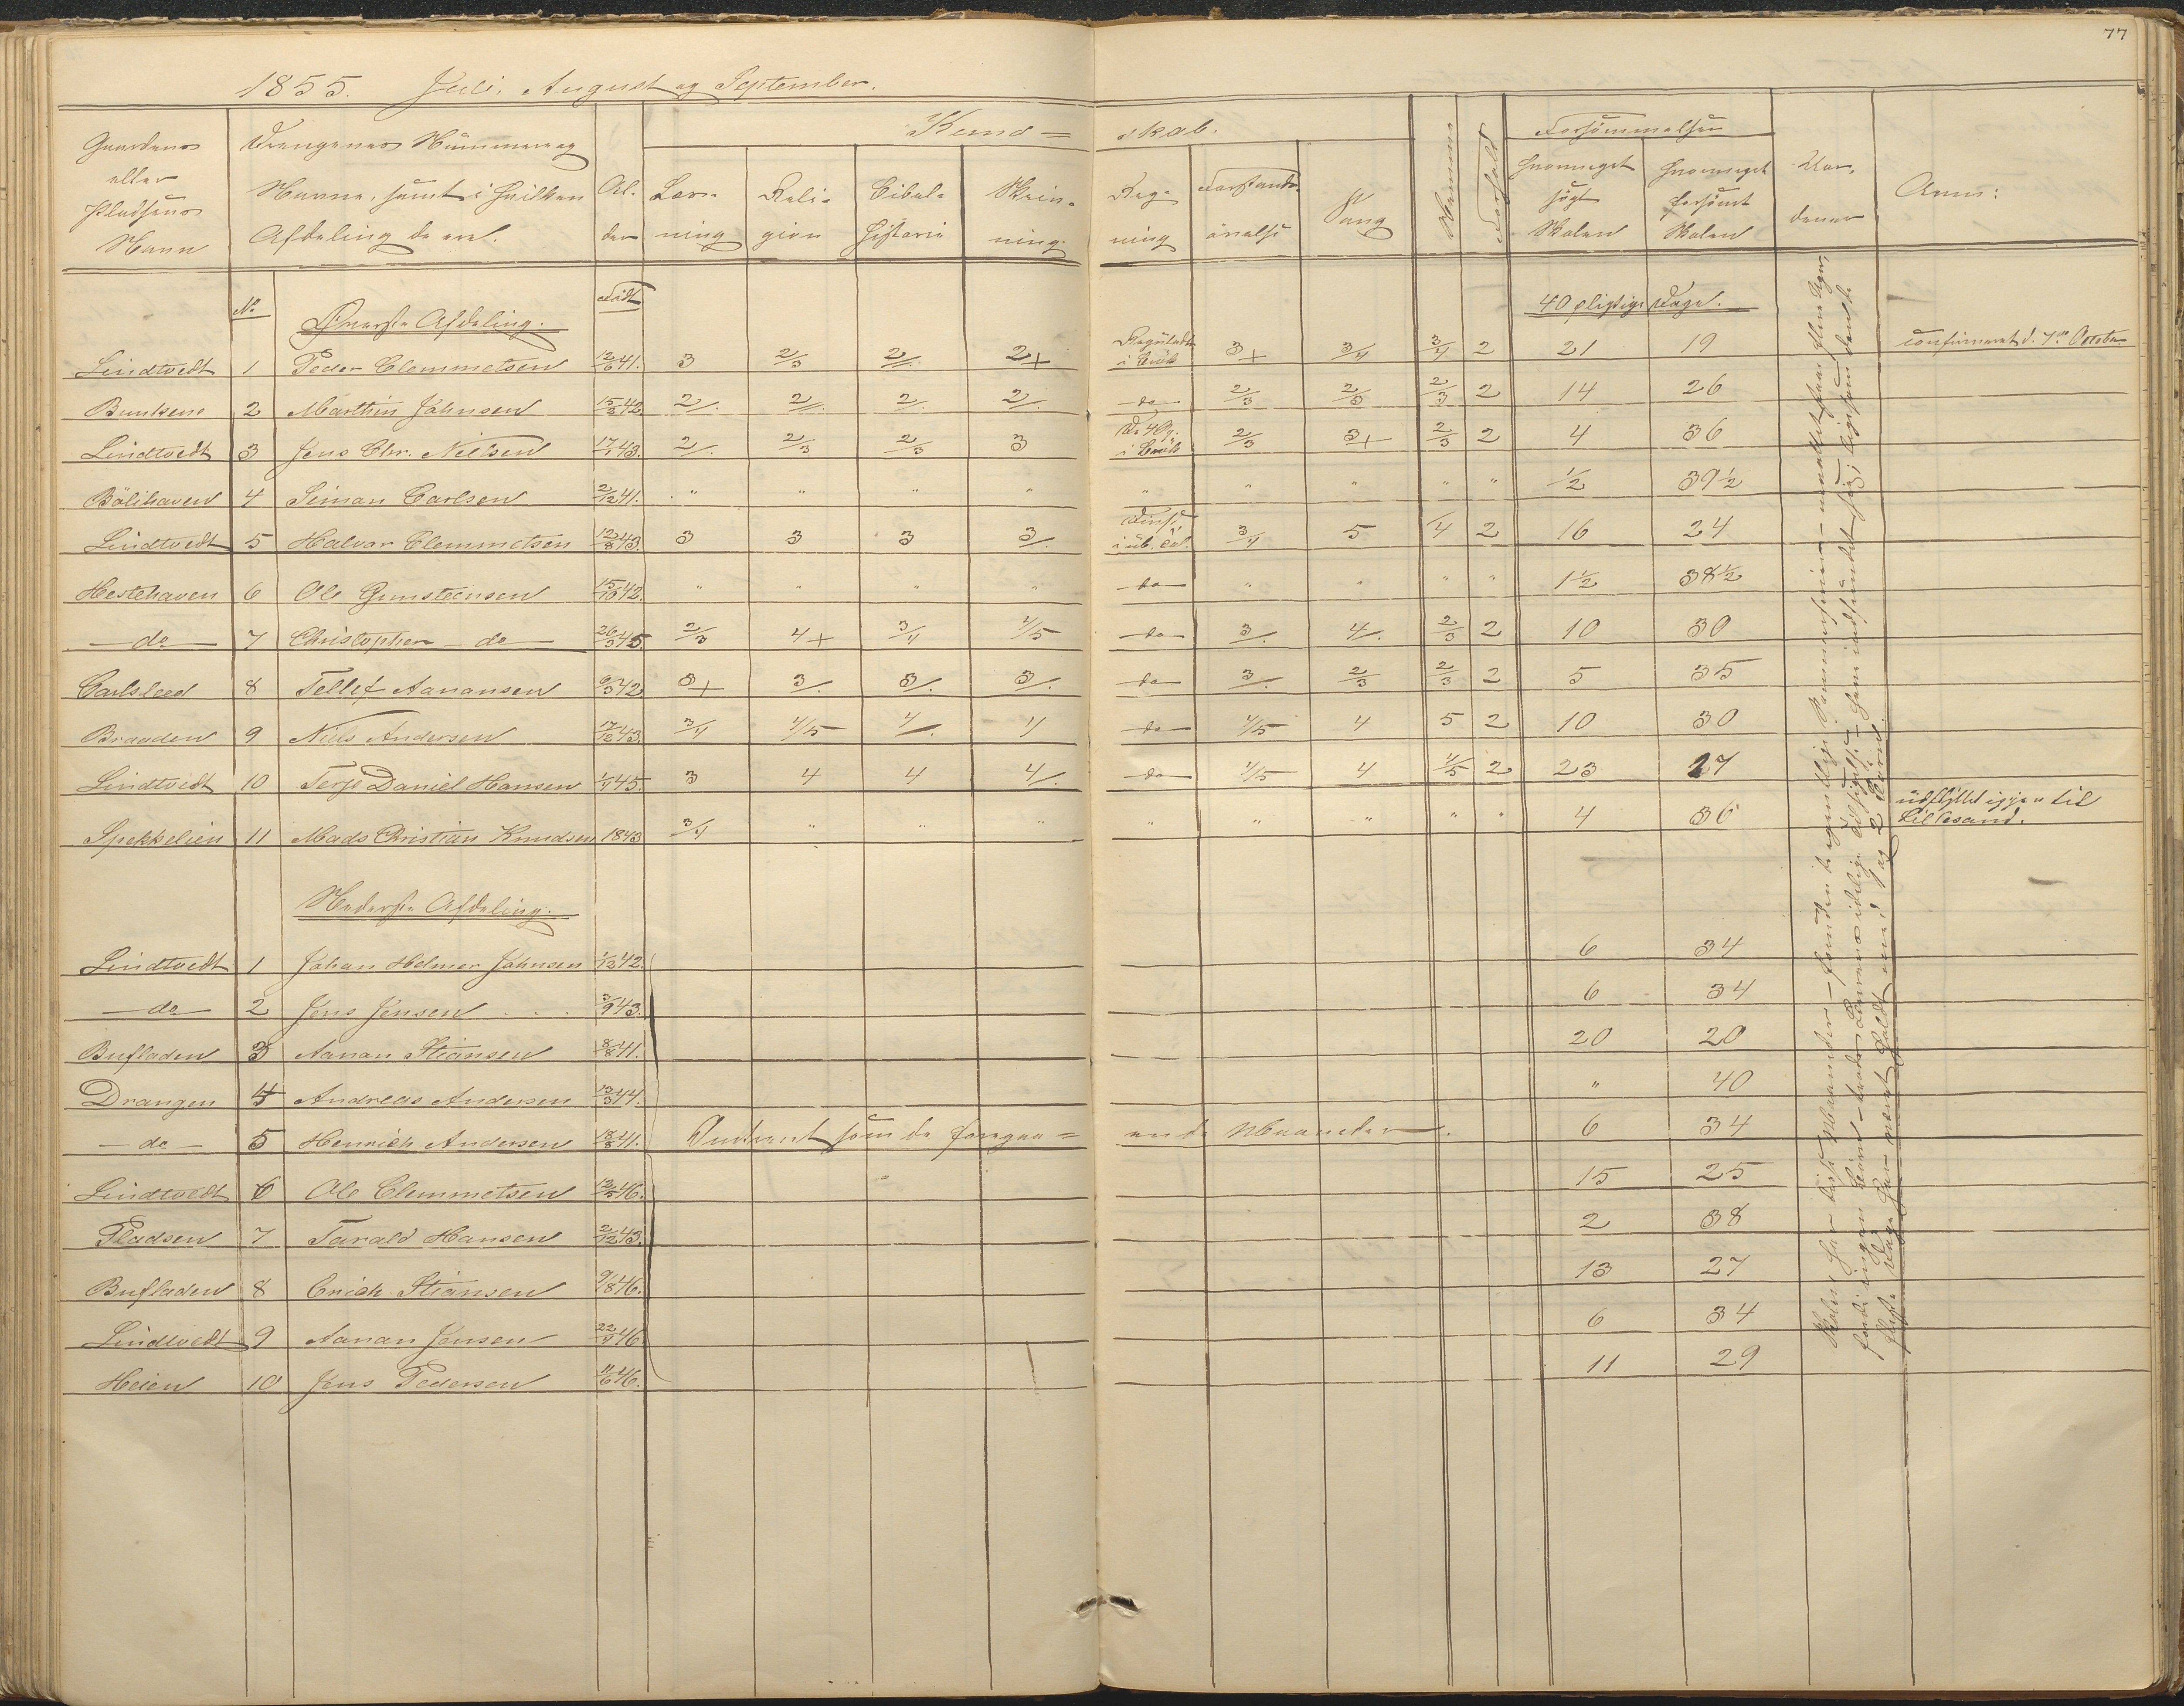 77
1855. Juli, August og September.
Gaardens eller Pladsens Navn
Drengenes Nummer og Navne, samt i hvilken Afdeling de ere.
Alder
Kundskab.
Læsning
Religion
Bibelhistorie
Skrivning
Regning
Forstandsövelse
Sang
Nemme
Forhold
Forsömmelser
hvormeget sögt Skolen
hvormeget forsömt Skolen
Anm:
No
Øverste Afdeling.
Født
40 pligtige Dage.
Lindtvedt 1 Peder Clemmetsen 12/6 41. 3 2/3 2/. 2+ Reguladetri i Brök 3+ 3/4 3/4 2 21 19 confirmeret d. 7de October
Bunkene 2 Marthin Johnsen 15/3 42 2/. 2/. 2/. 2/. do 2/3 2/3 2/3 2 14 26
Lindtvedt 3 Jens Chr. Nielsen 17/1 43. 2/. 2/3 2/3 3 De 4 Sp. i Brök 2/3 3+ 2/3 2 4 36
Bölihaven 4 Simon Carlsen 2/12 41. " " " " " " " " " 1/2 39 1/2
Lindtvedt 5 Halvor Clemmetsen 12/8 43. 3 3 3 3/. 3/4 5 4 2 16 24
Hestehaven 6 Ole Gunsteensen 15/10 42. " " " " do " " " " 1 1/2 38 1/2
do 7 Christopher do 26/3 45. 2/3 4+ 3/4 4/5 do 3/. 4/. 2/3 2 10 30
Carlsleed 8 Tellef Aanonsen 9/3 42 3+ 3/. 3/. 3/. do 3/. 2/3 2/3 2 5 35
Braaden 9 Niels Andersen 17/12 43. 3/4 4/5 4/. 4 do 4/5 4 5 2 10 30
Lindtvedt 10 Terje Daniel Hansen 1/4 45. 3 4 4 4/. do 4/5 4 4/5 2 23 27
Spekkelien 11 Mads Christian Knudsen 1843 3/4 " " " " " " " " 4 36 udflyttet igjen til Lillesand.
Nederste Afdeling.
Lindtvedt 1 Johan Helmer Johnsen 1/12 42. 6 34
do 2 Jens Jensen 3/9 43. 6 34
Bufladen 3 Aanon Stiansen 8/8 41. 20 20
Drangen 4 Andreas Andersen 13/3 44. " 40
do 5 Henrich Andersen 18/8 41. Omtrent som de foregaaende Maaneder. 6 34
Lindtvedt 6 Ole Clemmetsen 12/5 46. 15 25
Pladsen 7 Tarald Hansen 2/12 43. 2 38
Bufladen 8 Erich Stiansen 9/8 46. 13 27
Lindtvedt 9 Aanon Jensen 22/4 46 6 34
Heien 10 Jens Pedersen 11/6 46. 11 29